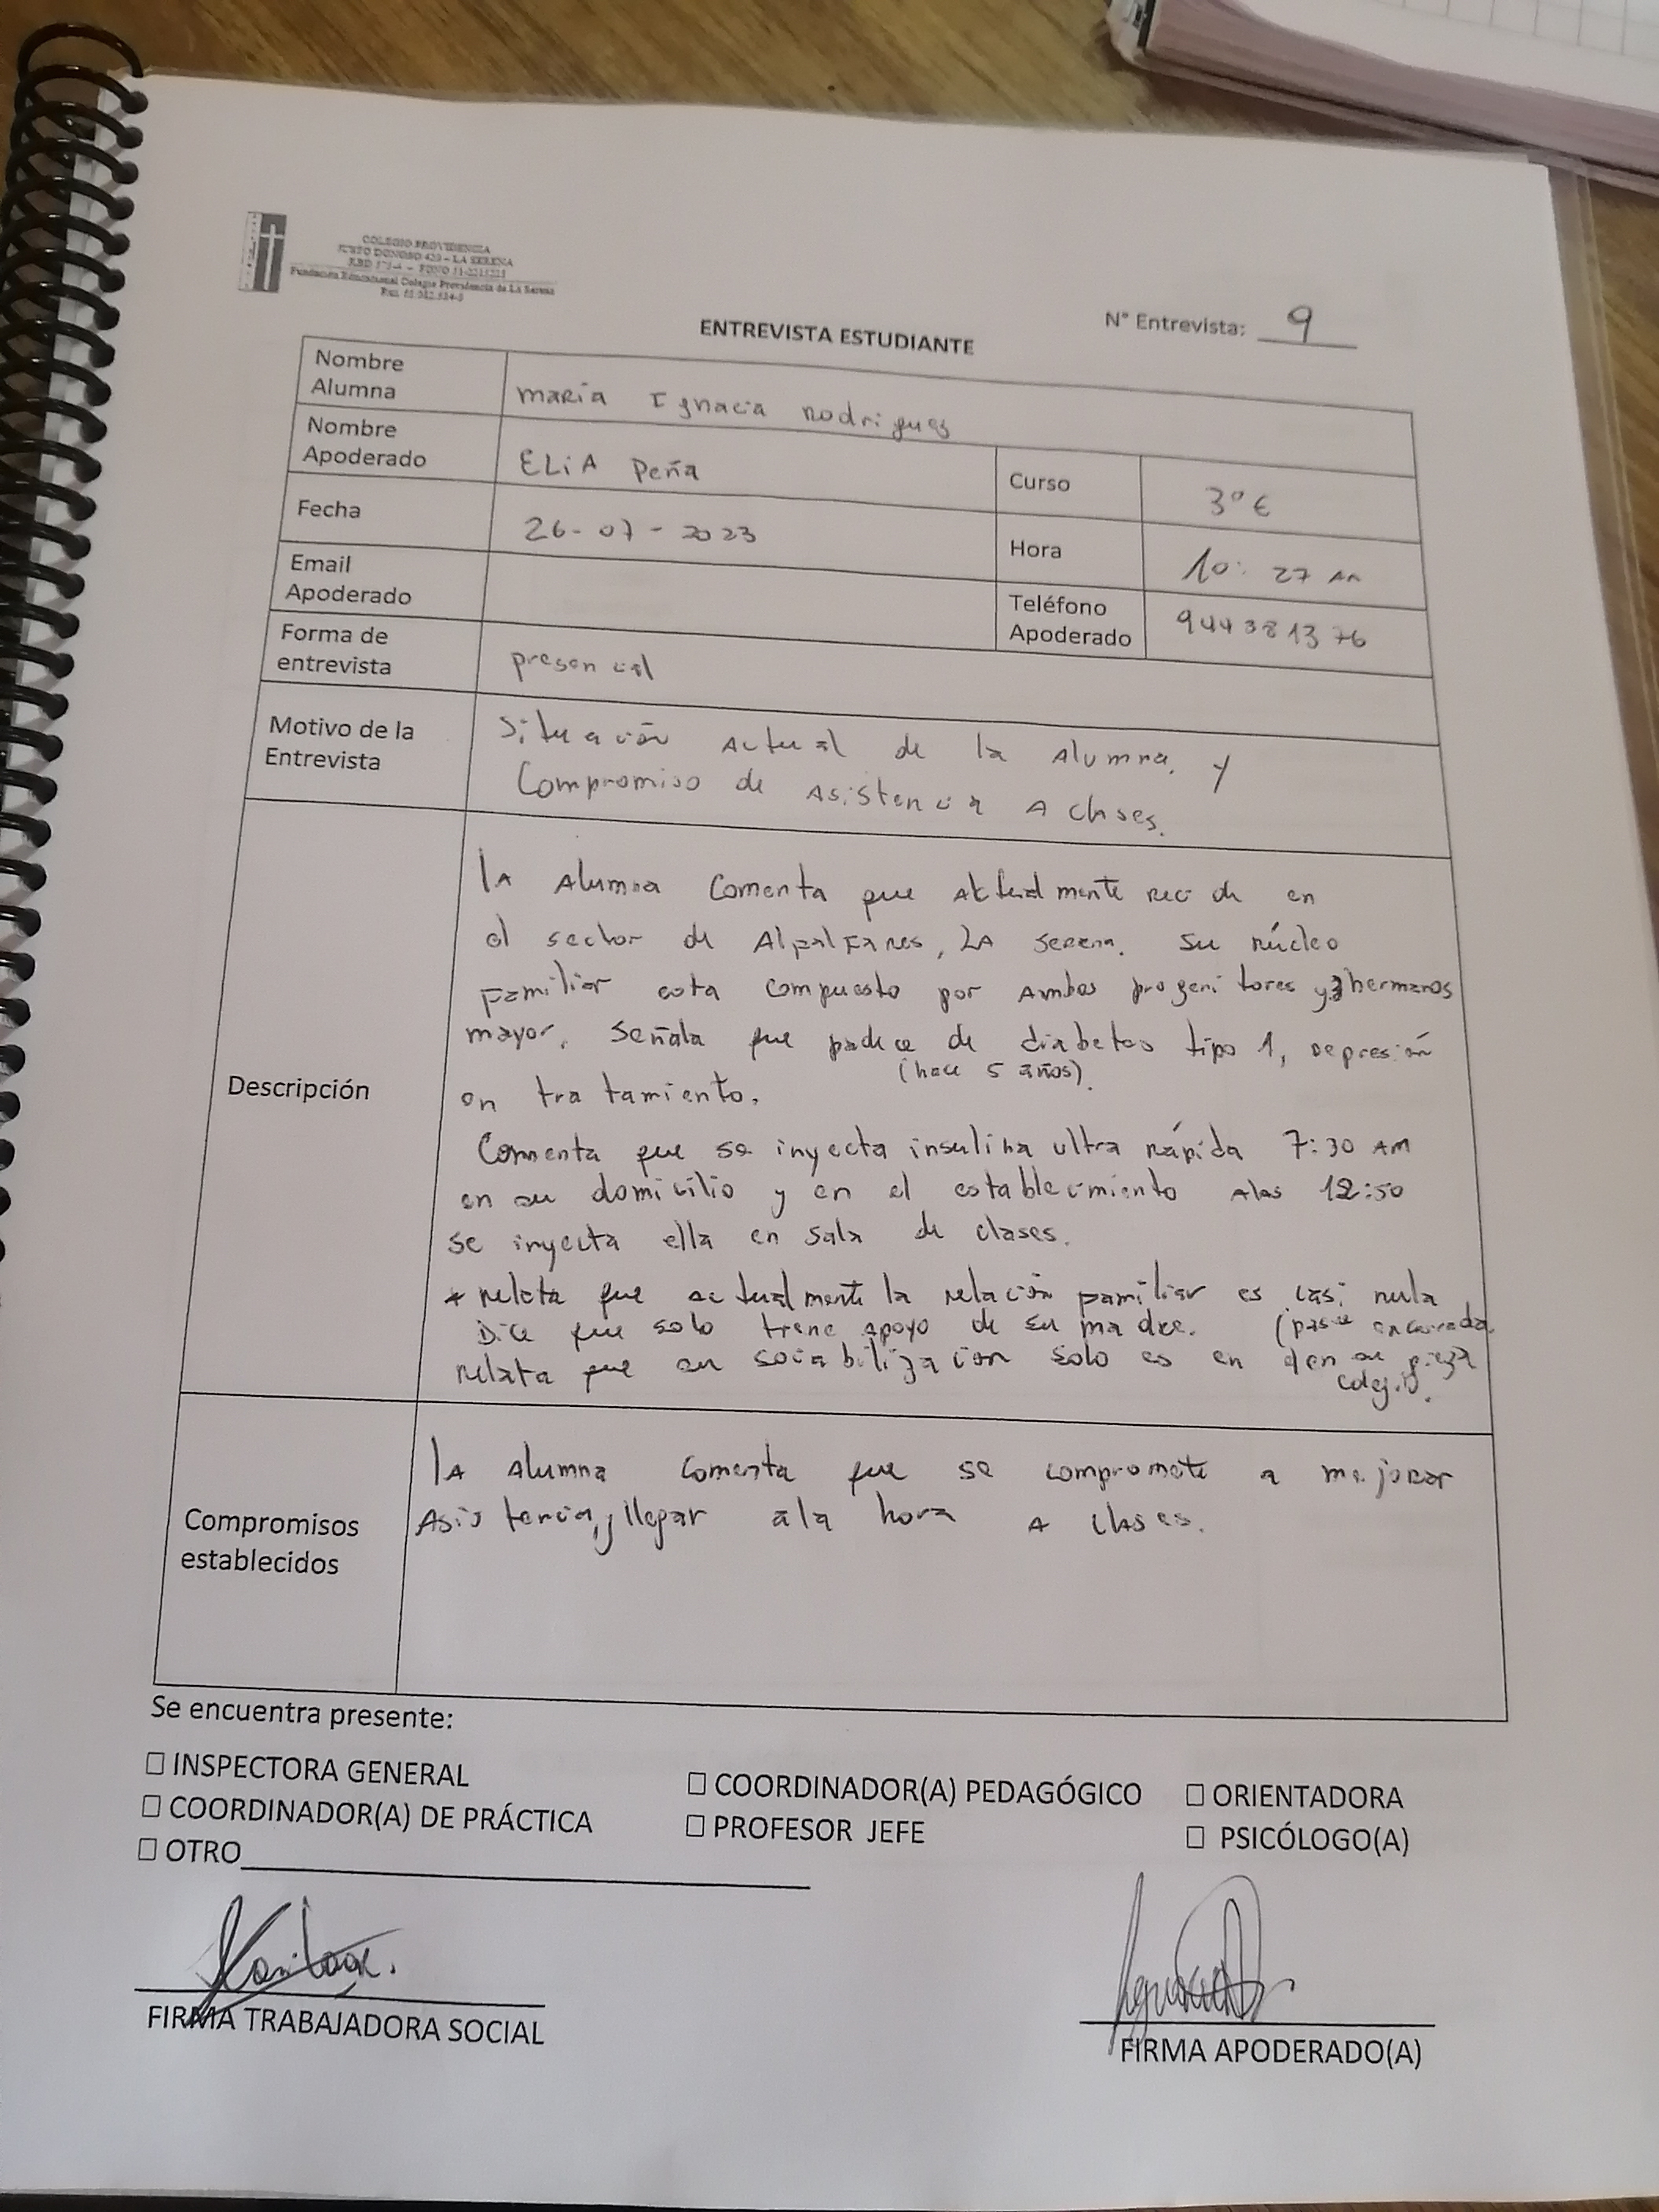 COLEGIO PROVIDENCIA
JUSTO DONOSO 420 - LA SERENA
Fundación Educacional Colegio Providencia de La Serena
N° Entrevista: 9
ENTREVISTA ESTUDIANTE
Nombre Alumna
maria Ignacia Rodrigues
Nombre Apoderado
ELiA Peña
Curso
3° E
Fecha
26-07-2023
Hora
10:27 AM
Email Apoderado
Teléfono Apoderado
944381376
Forma de entrevista
presencial
Motivo de la Entrevista
Situación Actual de la Alumna, y
Compromiso de Asistencia A clases.
Descripción
lA Alumna Comenta que Actualmente reside en
el sector de AlfalFares, LA Serena. Su núcleo
Familiar esta compuesto por Ambos progenitores y hermanos
mayor, Señala que padece de diabetes tipo 1, depresión
(hace 5 años).
en tratamiento.
Comenta que se inyecta insulina ultra rápida 7:30 AM
en su domicilio y en el establecimiento Alas 12:50
se inyecta ella en Sala de clases.
* relata que actualmente la relación familiar es casi nula
Dice que solo tiene apoyo de su madre. (pasa encerrada
relata que su sociabilización solo es en en su pieza
colegio.
Compromisos establecidos
lA Alumna comenta que se compromete a mejorar
Asistencia, y llegar ala hora A clases.
Se encuentra presente:
☐ INSPECTORA GENERAL ☐ COORDINADOR(A) PEDAGÓGICO ☐ ORIENTADORA
☐ COORDINADOR(A) DE PRÁCTICA ☐ PROFESOR JEFE ☐ PSICÓLOGO(A)
☐ OTRO
FIRMA TRABAJADORA SOCIAL
FIRMA APODERADO(A)